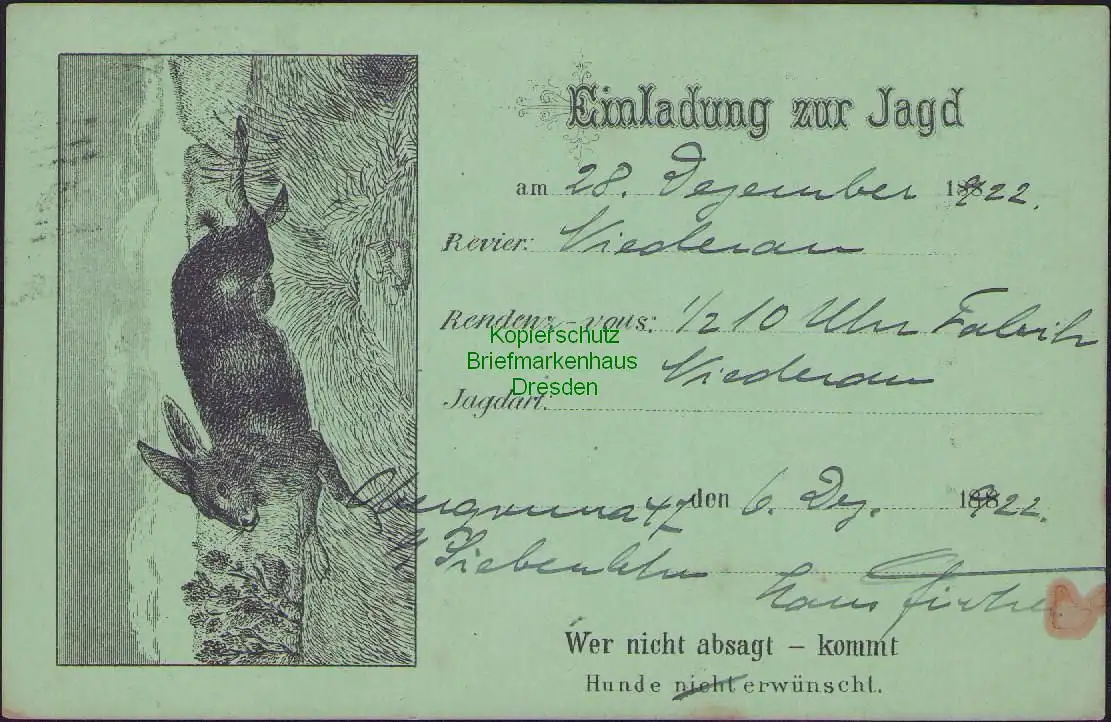 Einladung zur Jagd
am 28. Dezember 1922.
Revier: Niederau
Rendenz-vous: 1/2 10 Uhr Fabrik
Niederau
Kopierschutz
Briefmarkenhaus
Dresden
Jagdart:
Obergruna 47 den 6. Dez. 1922.
Siebenlehn
Hans Fischer
Wer nicht absagt – kommt
Hunde nicht erwünscht.